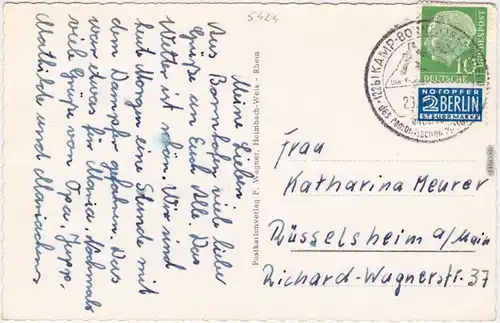 5424
Meine Lieben
Aus Bornhofen viele liebe
Grüße an Euch Alle. Das
Wetter ist schön. Wir sind
heut Morgen eine Stunde mit
dem Dampfer gefahren. Das
war etwas für Maria. Nochmals
viele Grüße von Opa,
Mathilde und Mariechen
Postkartenverlag F. Wagner, Heimbach-Weis - Rhein
(22b) KAMP-BORNHOFEN
des romantischen
10
DEUTSCHE BUNDESPOST
NOTOPFER
2 BERLIN
STEUERMARKE
Frau
Katharina Meurer
Rüsselsheim a/Main
Richard-Wagnerstr. 37